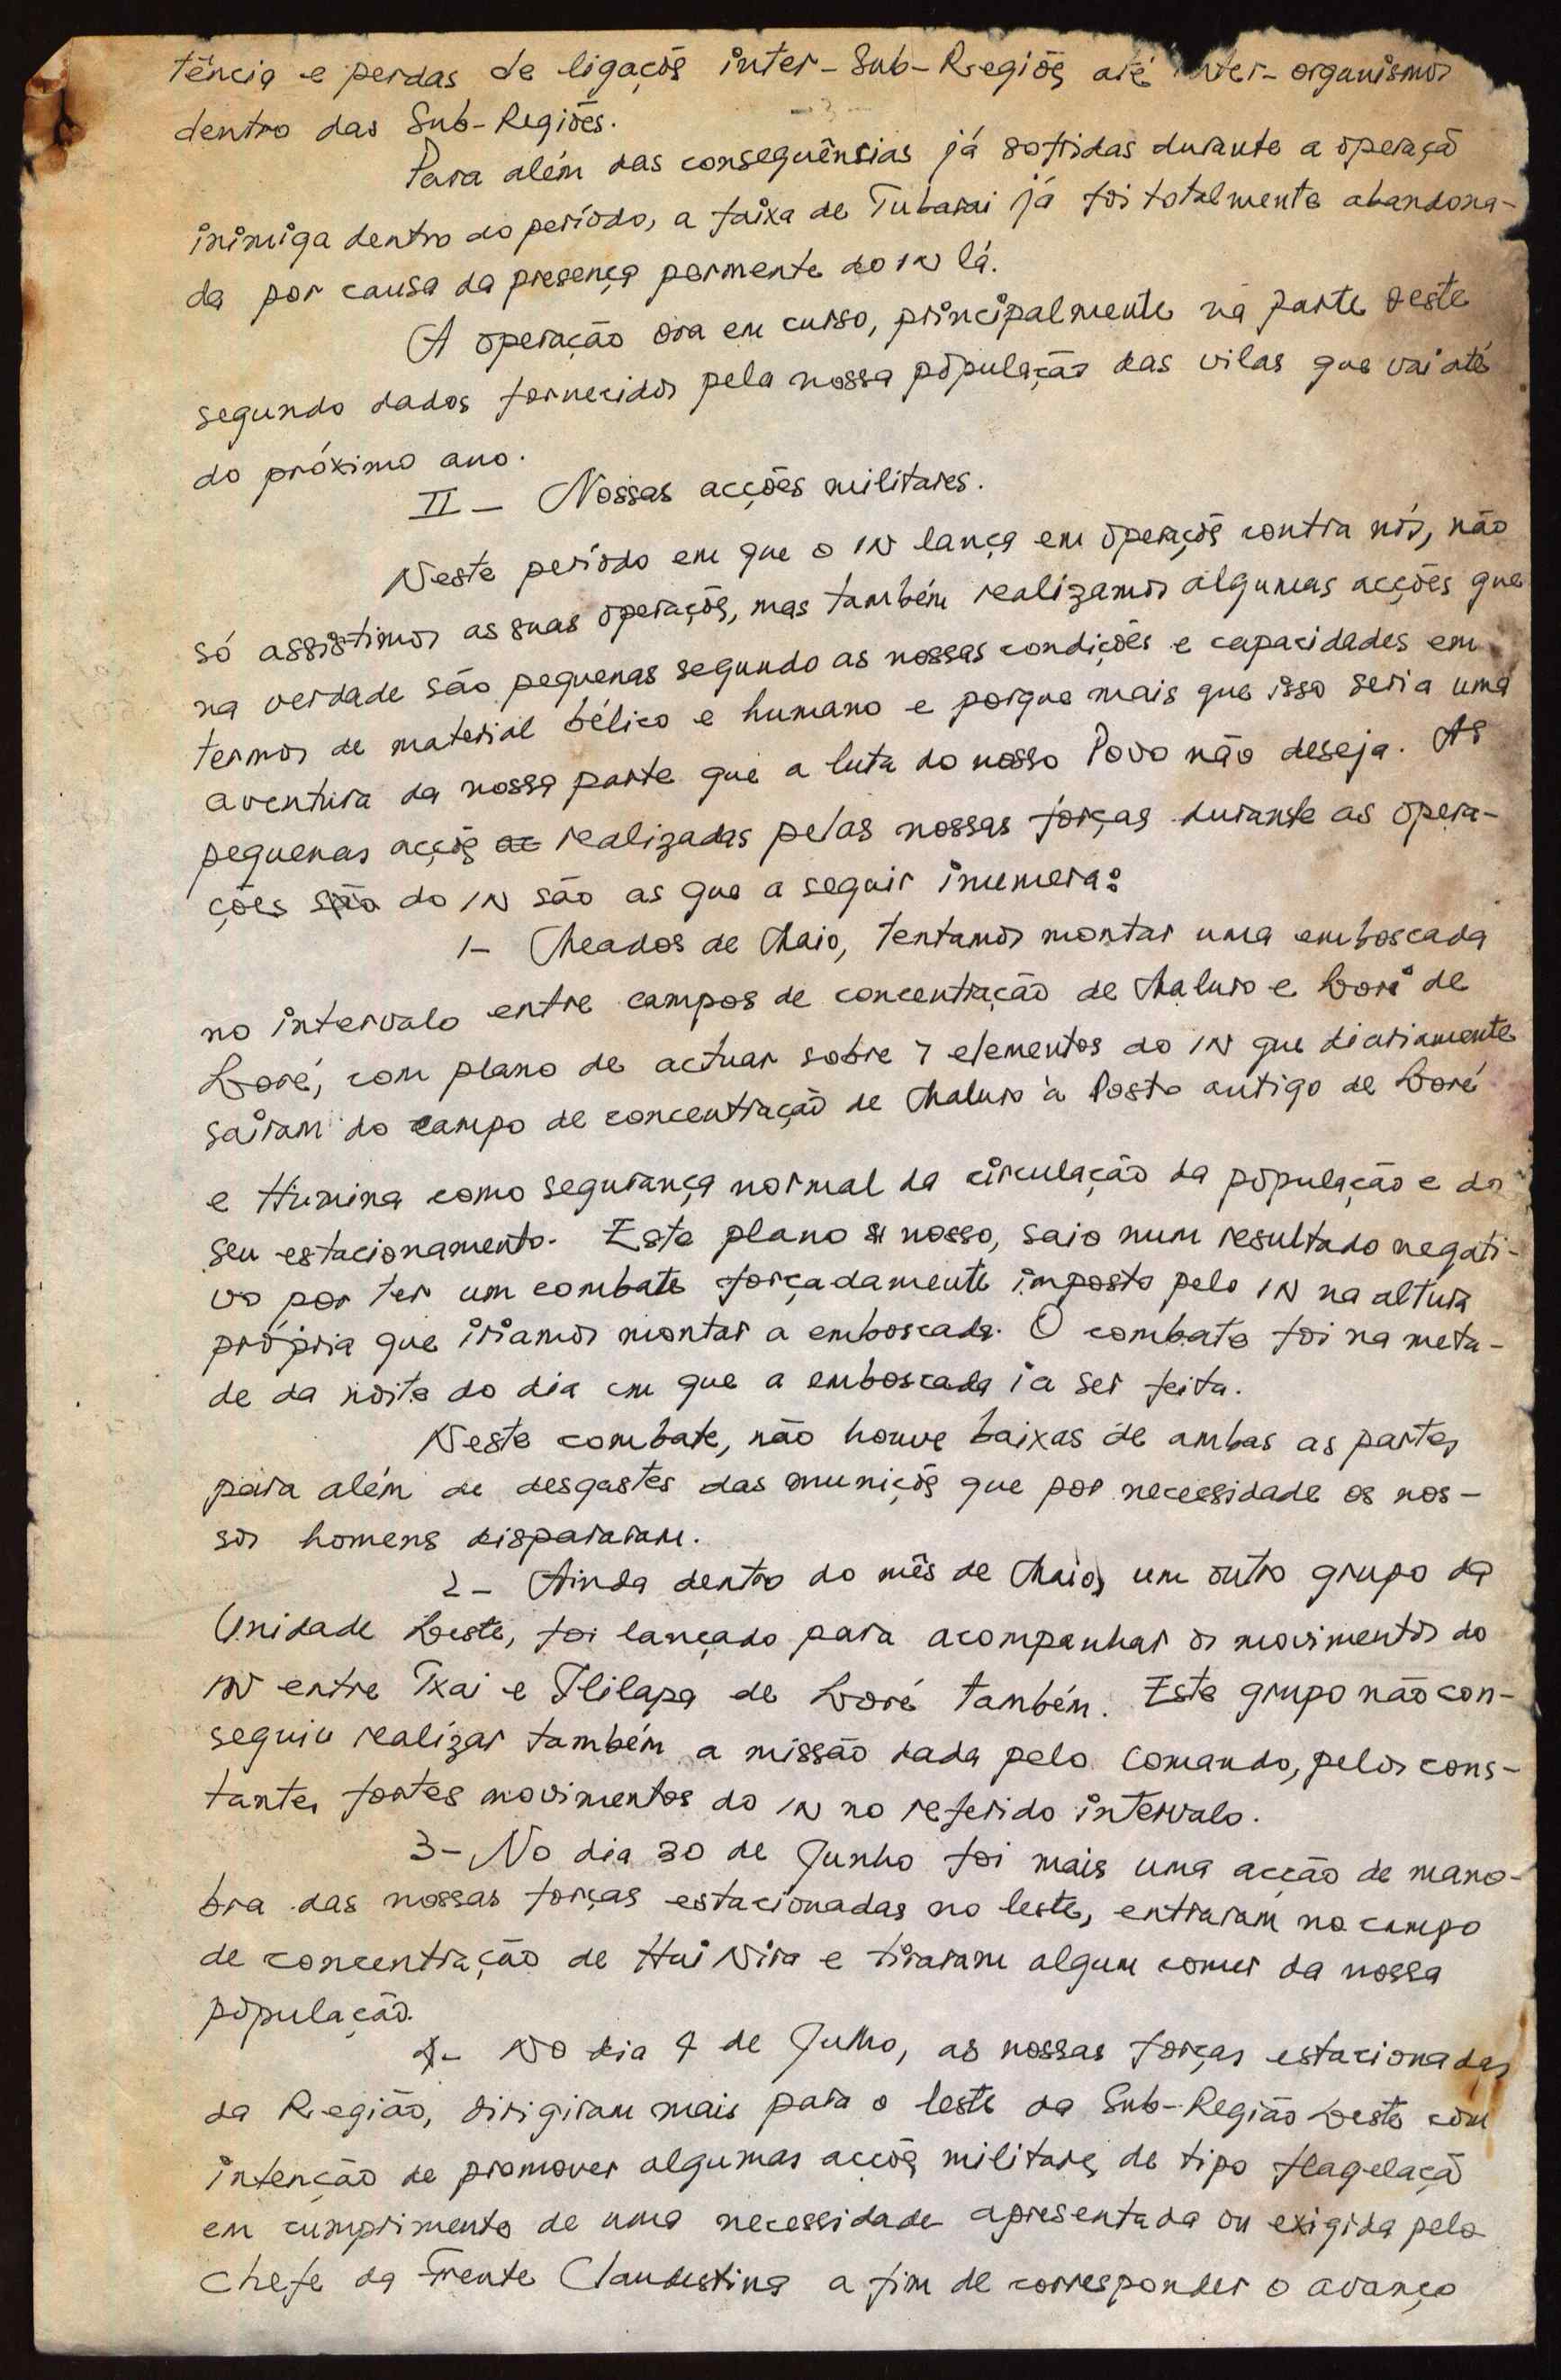 tência e perdas de ligaçõs inter-Sub-Regiões até inter-organismos
- 3 -
dentro das Sub-Regiões.
Para além das consequências já sofridas durante a operaçã
inimiga dentro do período, a faixa de Tubarai já foi totalmente abandona-
da por causa da presença permente do IN lá.
A operação ora em curso, principalmente na parte oeste
segundo dados fornecidos pela nossa população das vilas que vai até
do próximo ano.
II - Nossas acções militares.
Neste período em que o IN lança em operaçõs contra nós, não
só assistimos as suas operaçõs, mas também realizamos algumas acções que
na verdade são pequenas segundo as nossas condições e capacidades em
termos de material bélico e humano e porque mais que isso seria uma
aventura da nossa parte que a luta do nosso Povo não deseja. As
pequenas acçõs realizadas pelas nossas forças durante as opera-
ções são do IN são as que a seguir inumera:
1- Meados de Maio, tentamos montar uma emboscada
no intervalo entre campos de concentração de Maluro e Loré de
Loré, com plano de actuar sobre 7 elementos do IN que diariamente
sairam do campo de concentração de Maluro à Posto antigo de Loré
e Humina como segurança normal da circulação da população e do
seu estacionamento. Este plano nosso, saio num resultado negati-
vo por ter um combate forçadamente imposto pelo IN na altura
própria que iriamos montar a emboscada. O combate foi na meta-
de da noite do dia em que a emboscada ia ser feita.
Neste combate, não houve baixas de ambas as partes
para além de desgastes das muniçõs que por necessidade os nos-
sos homens dispararam.
2- Ainda dentro do mês de Maio, um outro grupo da
Unidade Leste, foi lançado para acompanhar os movimentos do
IN entre Txai e Ililapa de Loré também. Este grupo não con-
seguiu realizar também a missão dada pelo Comando, pelos cons-
tantes fortes movimentos do IN no referido intervalo.
3- No dia 30 de Junho foi mais uma acção de mano-
bra das nossas forças estacionadas no leste, entraram no campo
de concentração de Hui Nira e tiraram algum comer da nossa
população.
4- No dia 4 de Julho, as nossas forças estacionadas
da Região, dirigiram mais para o leste da Sub-Região Leste com
intenção de promover algumas acçõs militares de tipo flagelaçã
em cumprimento de uma necessidade apresentada ou exigida pelo
Chefe da Frente Clandestina a fim de corresponder o avanço